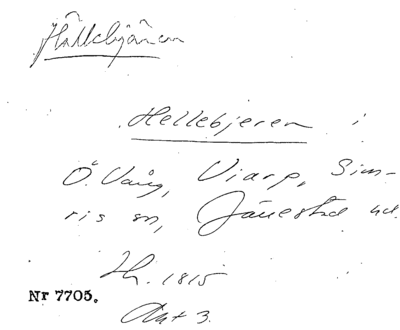 Hällebjären
Hellebjeren i
Ö. Vång, Viarp, Sim-
ris sn, Järrestad hd.
Hh. 1815
Akt 3.
Nr 7705.